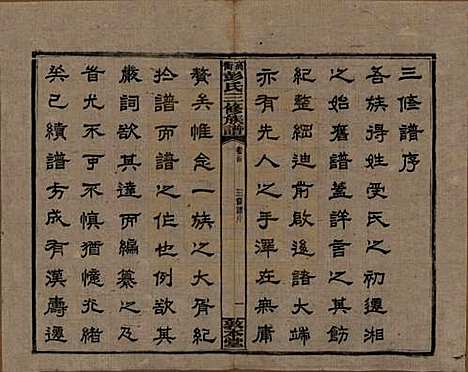 三修譜序
吾族得姓受氏之初遷湘
之始舊譜蓋詳言之其飭
紀整綱迪前啟後諸大端
亦有先人之手澤在無庸
彭氏三修族譜
三修譜序
一
敦本堂
贅矣惟念一族之大胥紀
於譜而譜之作也例欲其
嚴詞欲其達而編纂之及
首尤不可不慎猶憶光緒
癸巳續譜方成有漢壽遷